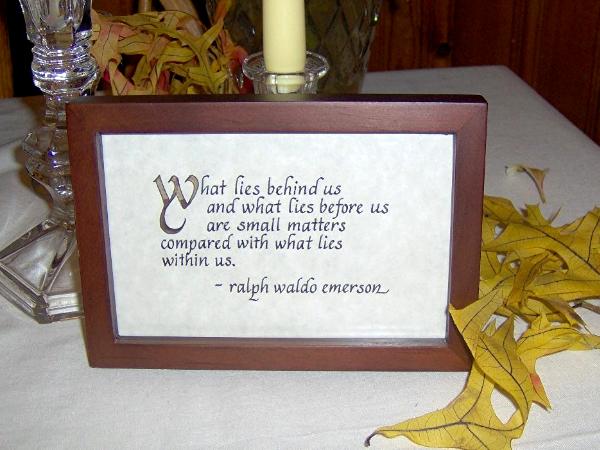 What lies behind us
and what lies before us
are small matters
compared with what lies
within us.
- ralph waldo emerson